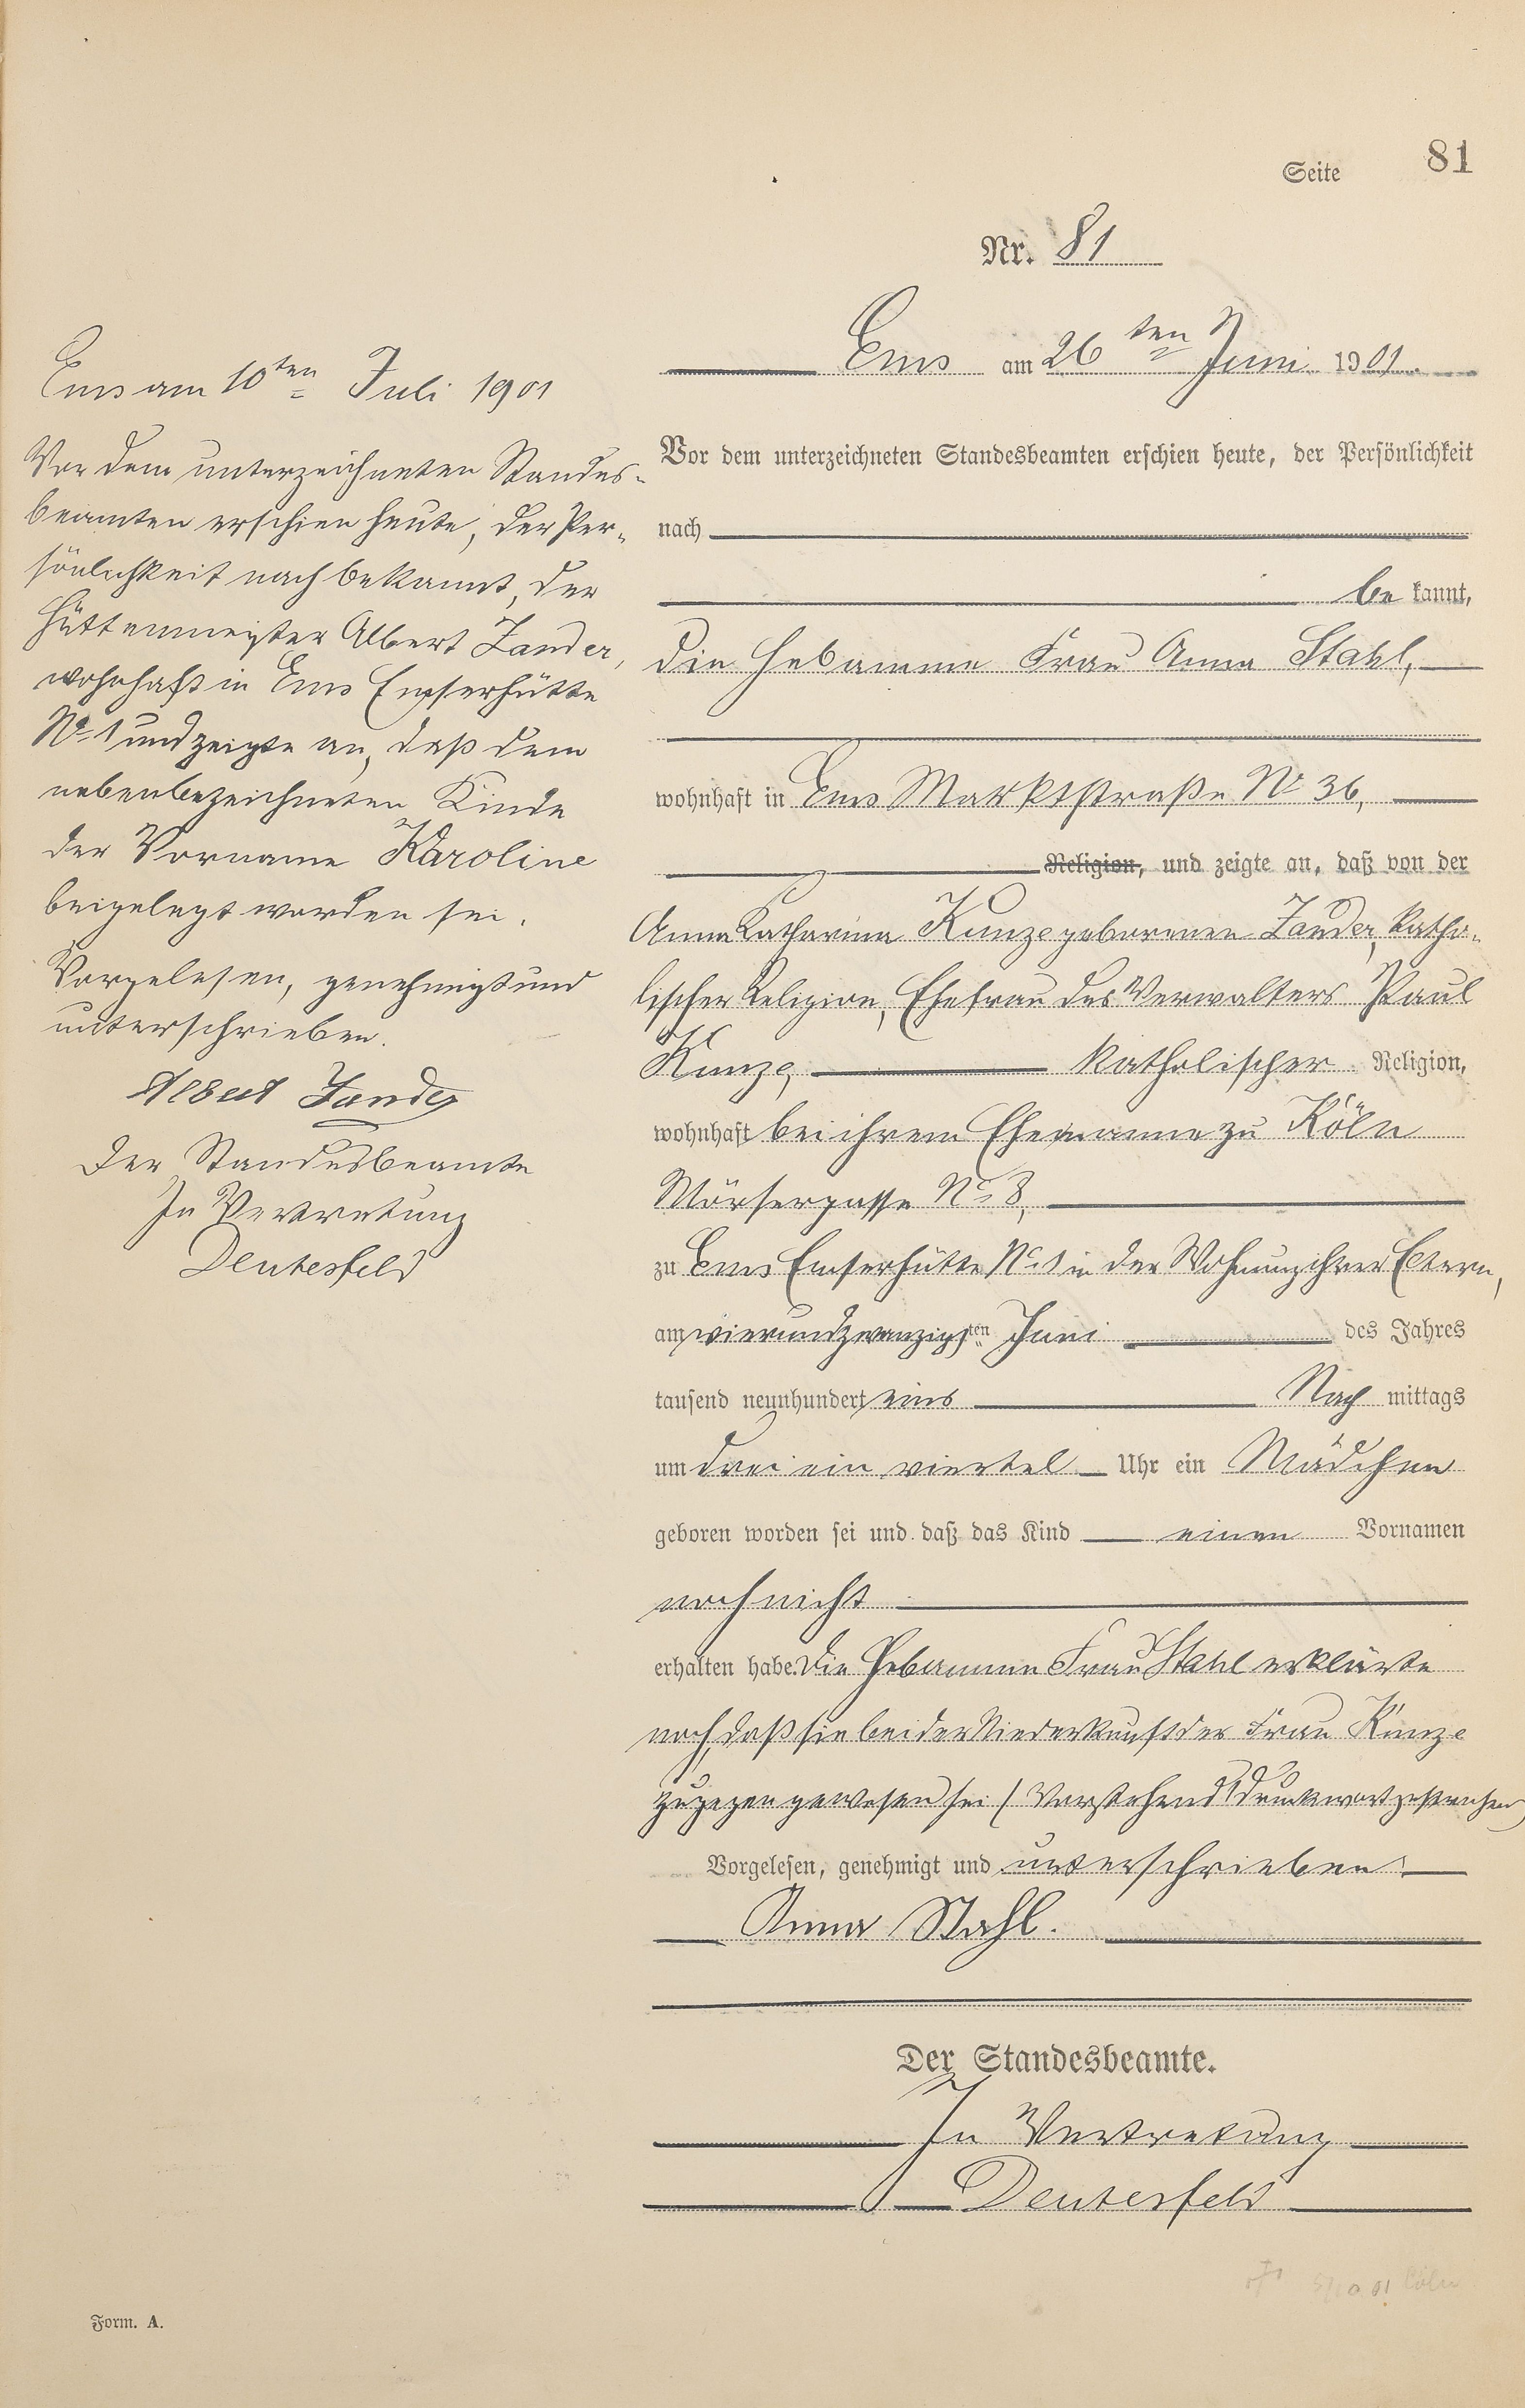 Seite 81
Nr. 81
Ems am 26ten Juni 1901.
Vor dem unterzeichneten Standesbeamten erschien heute, der Persönlichkeit
nach
be kannt,
die Hebamme Frau Anna Stahl,
wohnhaft in Ems Marktstraße No 36,
Religion, und zeigte an, daß von der
Anna Katharina Kunze geborenen Zander, katho-
lischer Religion, Ehefrau des Verwalters Paul
Kunze, katholischer Religion,
wohnhaft bei ihrem Ehemanne zu Köln
Mörsergasse No 8,
zu Ems Emserhütte No 1 in der Wohnung ihrer Eltern,
am vierundzwanzigsten Juni des Jahres
tausend neunhundert eins Nach mittags
um drei ein viertel Uhr ein Mädchen
geboren worden sei und daß das Kind einen Vornamen
noch nicht
erhalten habe. Die Hebamme Frau Stahl erklärte
noch, daß sie bei der Niederkunft der Frau Kunze
zugegen gewesen sei (Vorstehend 1 Druckwort gestrichen)
Vorgelesen, genehmigt und unterschrieben.
Anna Stahl.
Der Standesbeamte.
In Vertretung
Deutesfeld
Ems am 10ten Juli 1901
Vor dem unterzeichneten Standes-
beamten erschien heute, der Per-
sönlichkeit nach bekannt, der
Hüttenmeister Albert Zander,
wohnhaft in Ems Emserhütte
No 1 und zeigte an, daß dem
nebenbezeichneten Kinde
der Vorname Karoline
beigelegt worden sei.
Vorgelesen, genehmigt und
unterschrieben.
Albert Zander
Der Standesbeamte
In Vertretung
Deutesfeld
Form. A.